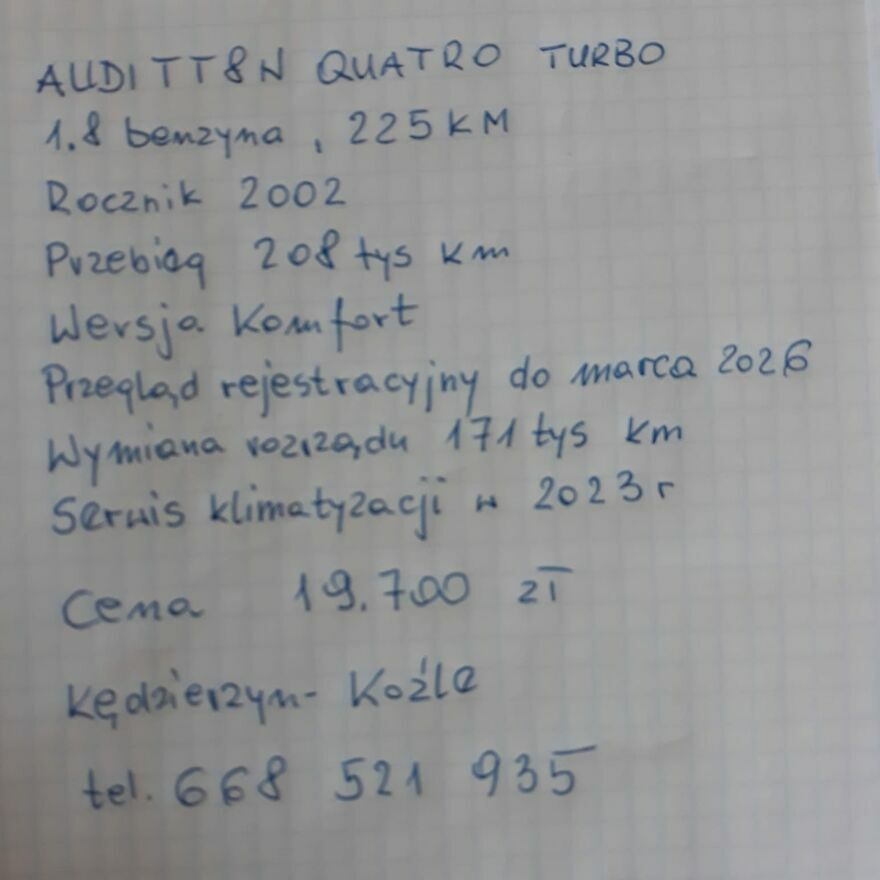 AUDI TT 8N QUATRO TURBO
1.8 benzyna, 225 KM
Rocznik 2002
Przebieg 208 tys km
Wersja Komfort
Przegląd rejestracyjny do marca 2026
Wymiana rozrządu 171 tys km
Serwis klimatyzacji w 2023 r
Cena 19.700 zł
Kędzierzyn-Koźle
tel. 668 521 935